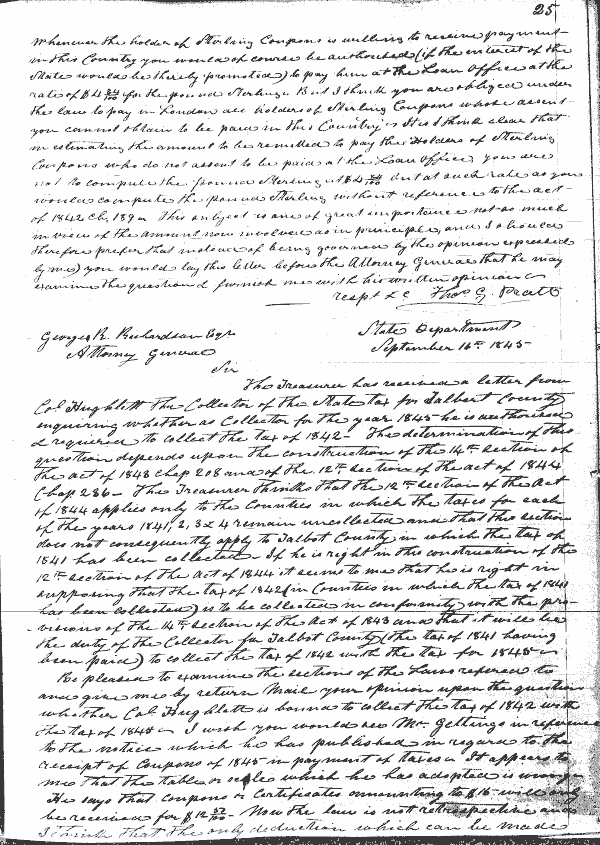 25
Whenever the holder of Sterling Coupons is willing to receive payment
in this Country you would of course be authorised (if the interest of the
State would be thereby promoted) to pay him at the Loan Office at the
rate of $4 44/100 for the pound Sterling. But I think you are obliged under
the law to pay in London all holders of Sterling Coupons whose assent
you cannot obtain to be paid in this Country. It is I think clear that
in estimating the amount to be remitted to pay the Holders of Sterling
Coupons who do not assent to be paid at the Loan Office, you are
not to compute the pound Sterling at $4 44/100 but at such rate as you
would compute the pound Sterling without reference to the act
of 1842 Ch. 189. This subject is one of great importance not so much
in view of the amount now involved as in principle, and I should
therefore prefer that instead of being governed by the opinion expressed
by me) you would lay this letter before the Attorney General that he may
examine the question & furnish me with his written opinion
respt &c Thos G Pratt
George R. Richardson Esqr
Attorney General
State Department
September 16th 1845
Sir
The Treasurer has received a letter from
Col Hughlett the Collector of the State tax for Talbert County
enquiring whether as Collector for the year 1845 he is authorised
& required to collect the tax of 1842 - The determination of this
question depends upon the construction of the 14th section of
the act of 1843 chap 208 and of the 12th section of the act of 1844
Chap 236 - The Treasurer thinks that the 12th section of the Act
of 1844 applies only to the Counties in which the taxes for each
of the years 1841, 2, 3 & 4 remain uncollected and that this section
does not consequently apply to Talbot County in which the tax of
1841 has been collected - If he is right in this construction of the
12th section of the Act of 1844 it seems to me that he is right in
supposing that the tax of 1842 (in Counties in which the tax of 1841
has been collected) is to be collected in conformity with the pro-
-visions of the 14th section of the Act of 1843 and that it will be
the duty of the Collector for Talbot County (the tax of 1841 having
been paid) to collect the tax of 1842 with the tax for 1845
Be pleased to examine the sections of the Laws refered to
and give me by return Mail your opinion upon the question
whether Col. Hughlett is bound to collect the tax of 1842 with
the tax of 1845 I wish you would see Mr. Gettings in reference
to the notice which he has published in regard to the
receipt of Coupons of 1845 in payment of taxes. It appears to
me that the table or scale which he has adopted is wrong
He says that coupons or Certificates amounting to $15 will only
be received for $12 Now the law is not retrospective and
I think that the only deduction which can be made